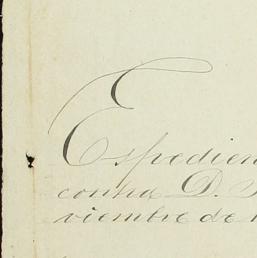 Espedien
contra D.
viembre de